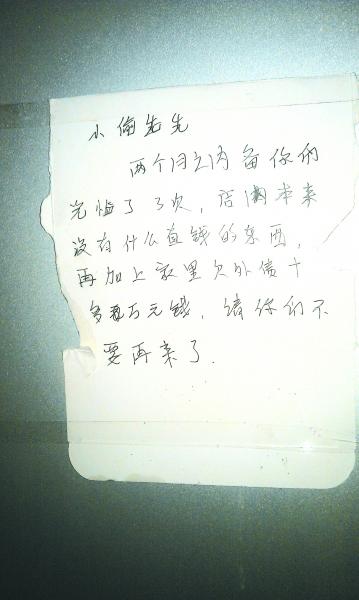 小偷先先
两个月之内备你们
光临了3次，店内本来
没有什么直钱的东西，
再加上家里欠外债十
多万元钱，请你们不
要再来了.